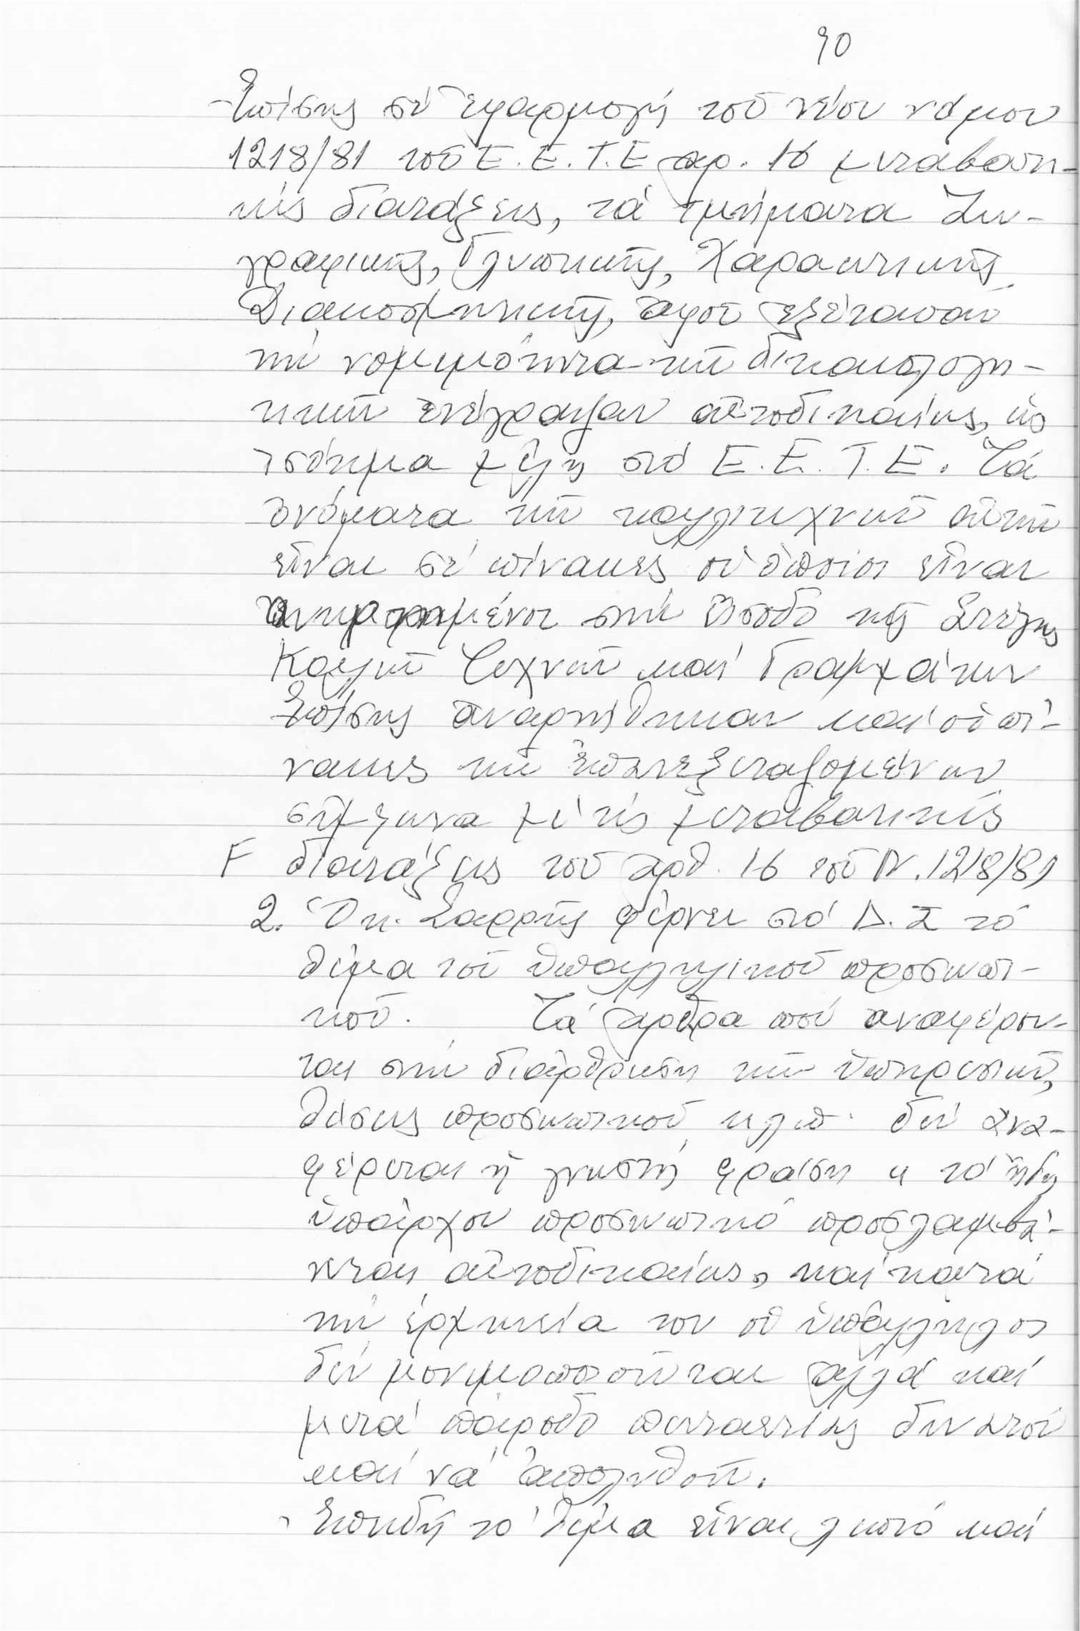 90
- Ἐπίσης σέ ἐφαρμογή τοῦ νέου νόμου
1218/81 τοῦ Ε.Ε.Τ.Ε ἀρ. 16 μεταβατι-
κές διατάξεις, τά τμήματα Ζω-
γραφικῆς, Γλυπτικῆς, Χαρακτικῆς
Διακοσμητικῆς, ἀφοῦ ἐξέτασαν
τήν νομιμότητα τῶν δικαιολογη-
τικῶν ἐνέγραψαν αὐτοδικαίως, ὡς
ἰσότιμα μέλη στό Ε.Ε.Τ.Ε. Τά
ὀνόματα τῶν καλλιτεχνῶν αὐτῶν
εἶναι σέ πίνακες οἱ ὁποῖοι εἶναι
στήν εἴσοδο τῆς Στέγης
Καλῶν Τεχνῶν καί Γραμμάτων
Ἐπίσης ἀναρτήθηκαν καί οἱ πί-
νακες τῶν ἐπανεξεταζομένων
σύμφωνα μέ τίς μεταβατικές
F διατάξεις τοῦ ἀρθ. 16 τοῦ Ν. 1218/81
2. Ὁ κ. Σαρρῆς φέρνει στό Δ.Σ τό
θέμα τοῦ ὑπαλληλικοῦ προσωπι-
κοῦ. Τά ἄρθρα πού ἀναφέρον-
ται στήν διάρθρωση τῶν ὑπηρεσιῶν,
θέσεις προσωπικοῦ κλπ. δέν ἀνα-
φέρεται ἡ γνωστή φράση « τό ἤδη
ὑπάρχον προσωπικό προσλαμβά-
νεται αὐτοδικαίως, καί κατά
τήν ἑρμηνεία του οἱ ὑπάλληλοι
δέν μονιμοποιοῦνται ἀλλά καί
μετά πάροδο πενταετίας δυνατόν
καί νά ἀπολυθοῦν.
- Ἐπειδή τό θέμα εἶναι λεπτό καί